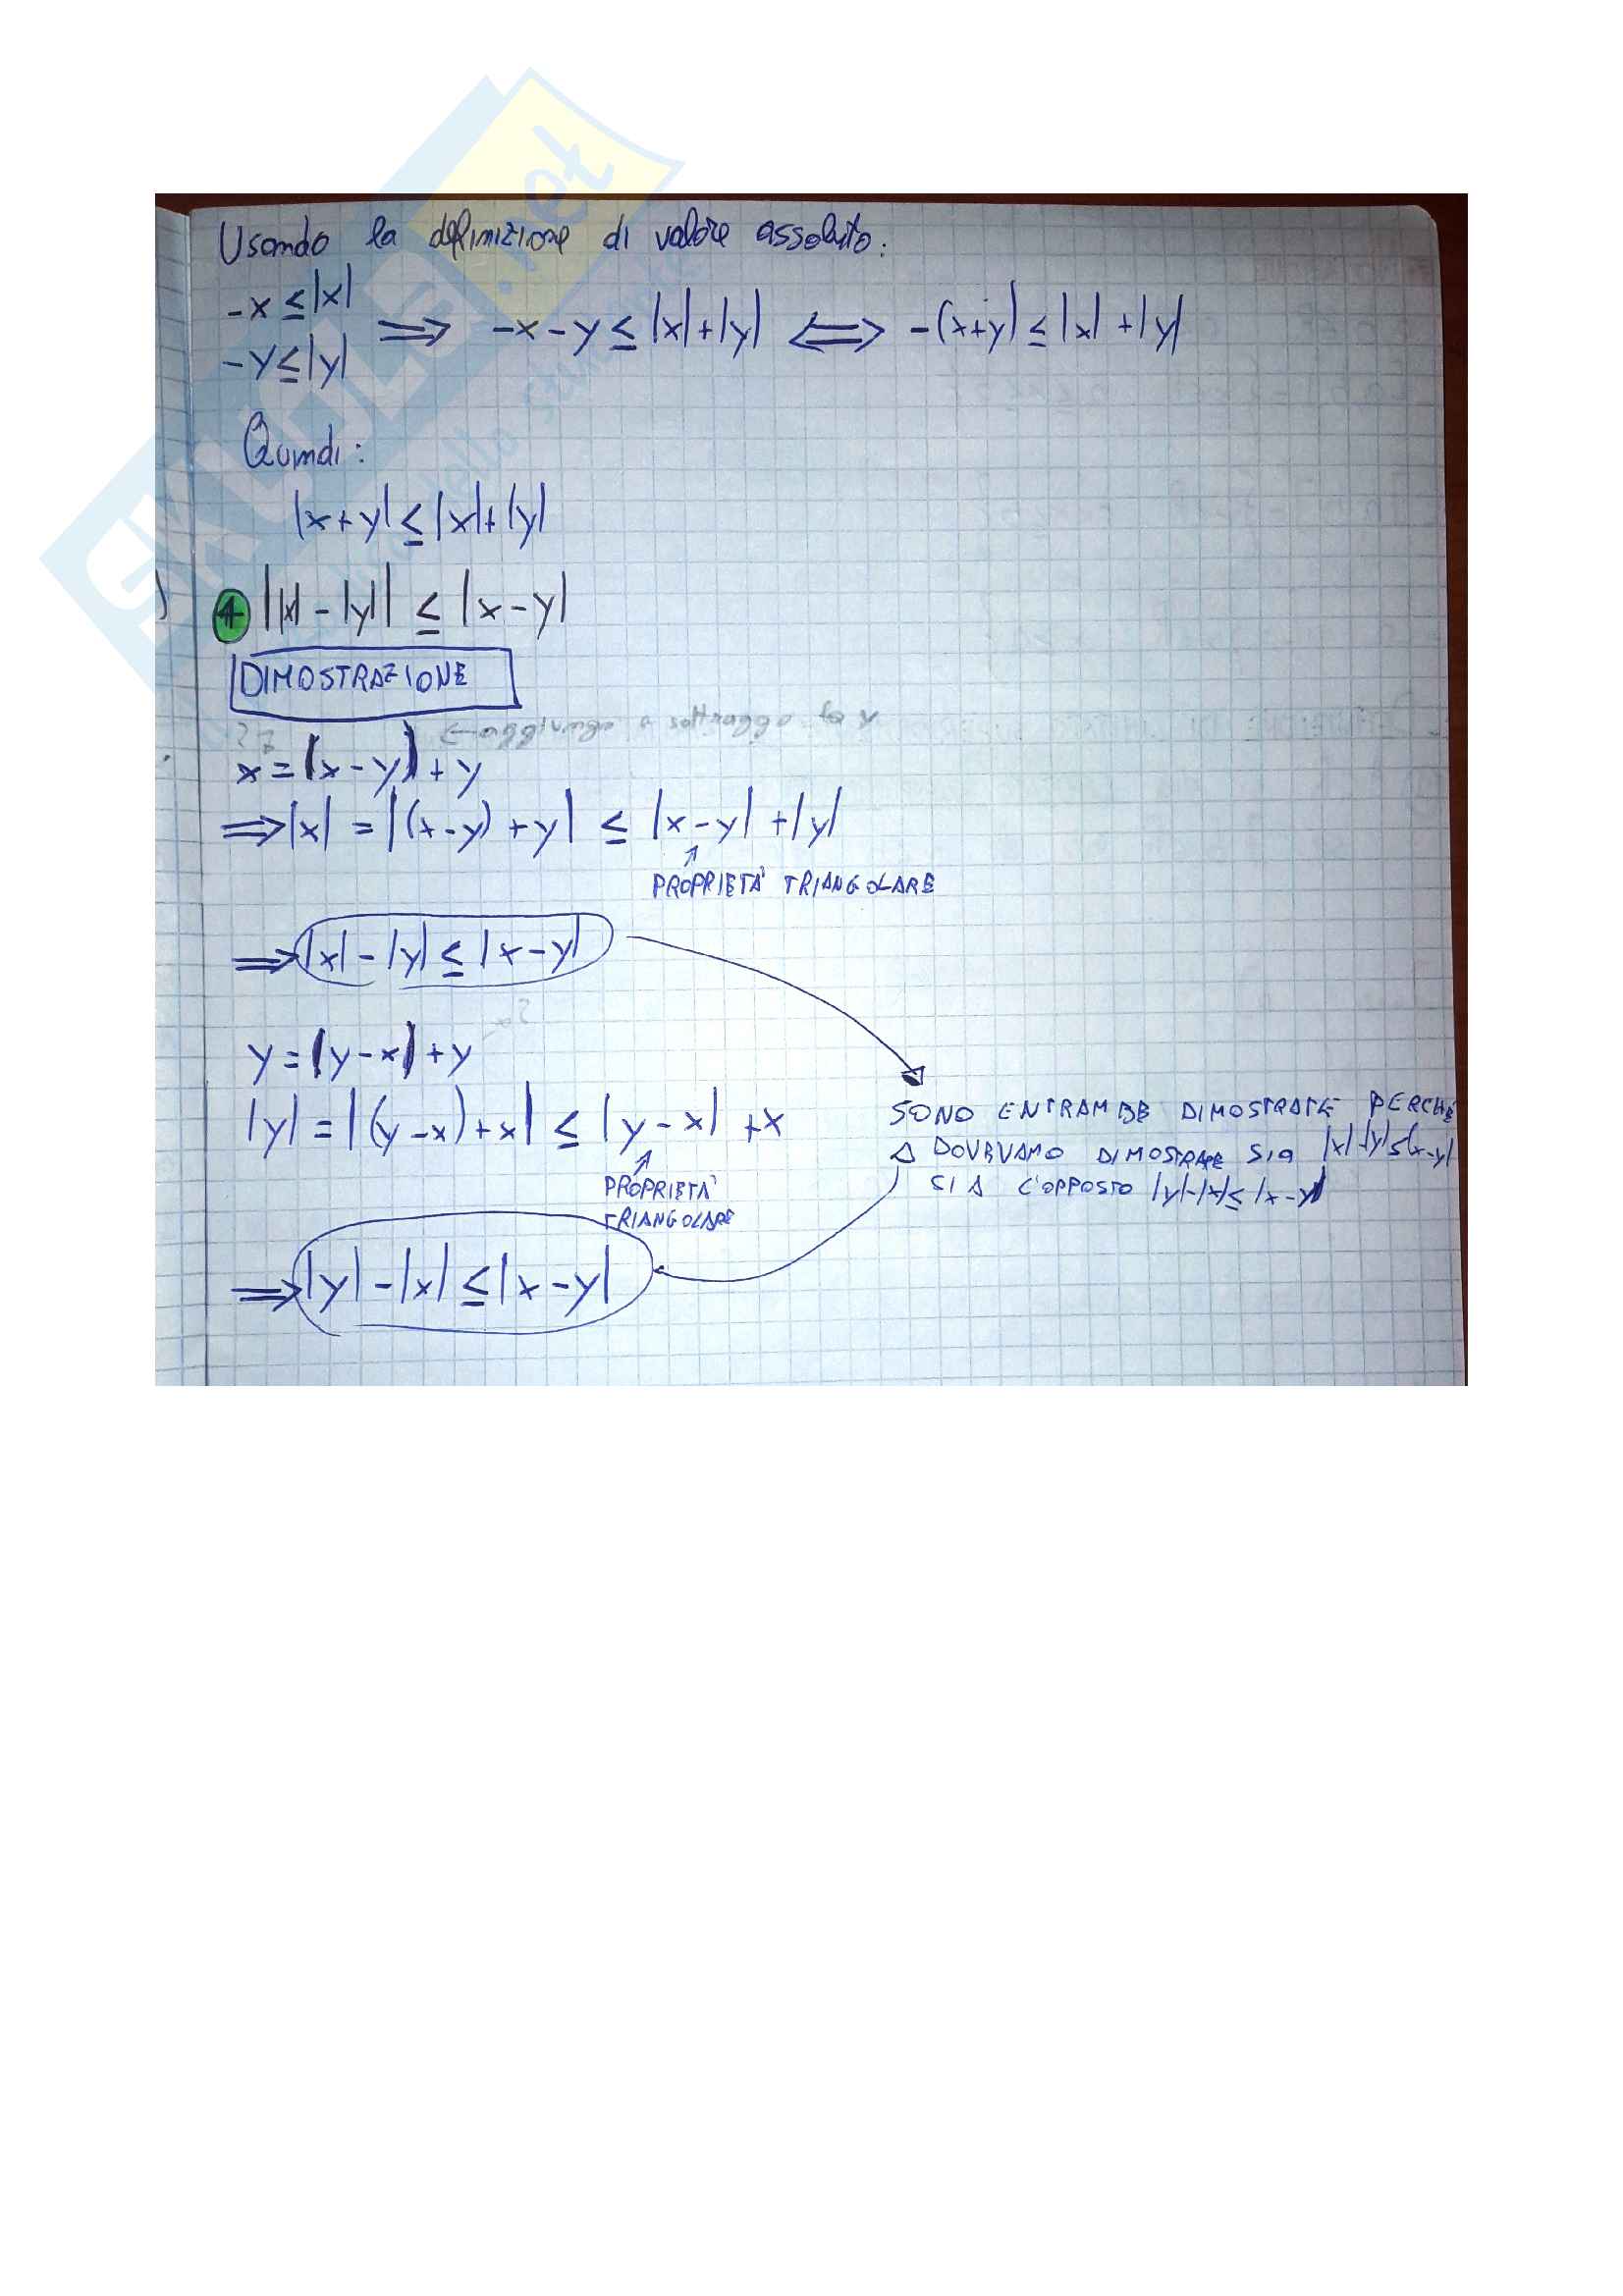 Usando la definizione di valore assoluto:
-x ≤ |x|
-y ≤ |y|
⟹ -x-y ≤ |x|+|y| ⟺ -(x+y) ≤ |x|+|y|
Quindi:
|x+y| ≤ |x|+|y|
4 ||x|-|y|| ≤ |x-y|
DIMOSTRAZIONE
→ aggiungo e sottraggo
x = (x-y)+y
⟹ |x| = |(x-y)+y| ≤ |x-y|+|y|
PROPRIETÀ TRIANGOLARE
⟹ |x|-|y| ≤ |x-y|
y = (y-x)+y
|y| = |(y-x)+x| ≤ |y-x| +x
PROPRIETÀ
TRIANGOLARE
⟹ |y|-|x| ≤ |x-y|
SONO ENTRAMBE DIMOSTRATE PERCHÈ
DOVEVAMO DIMOSTRARE SIA |x|-|y|≤|x-y|
SIA L'OPPOSTO |y|-|x|≤|x-y|
SKUOLA.net